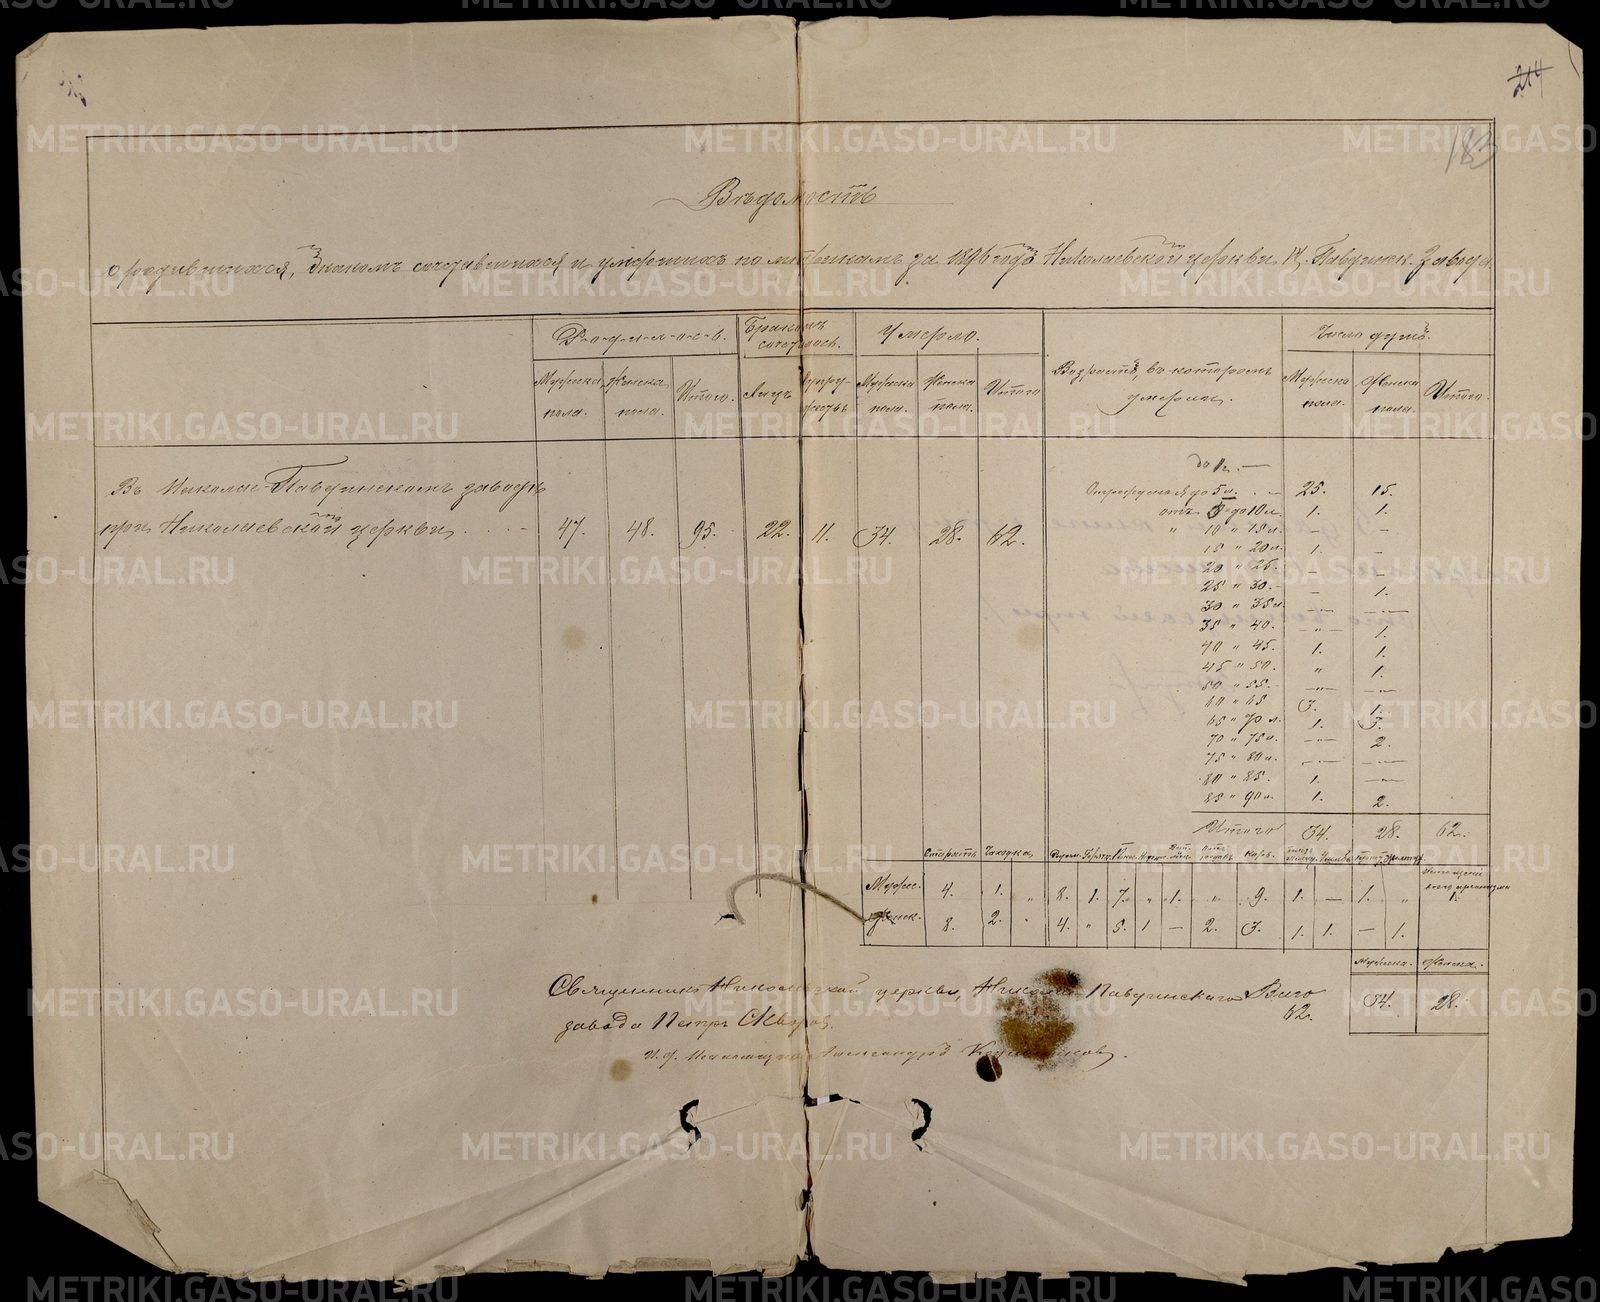 214
183
Вѣдомость
о родившихся, бракомъ сочетавшихся и умершихъ по метрикамъ за 1896 годъ Николаевской церкви Н. Павдинск. завода.
Родилось. Бракомъ сочеталось. Умерло. Возрастъ, въ которомъ умерли. Число душъ.
Мужеска пола. Женска пола. Итого. Лицъ Супружествъ Мужеска пола. Женска пола. Итого Мужеска пола. Женска пола. Итого.
Въ Николае-Павдинскомъ заводѣ
при Николаевской церкви. 47. 48. 95. 22. 11. 34. 28. 62.
до 1 г. —
Отъ рожденія до 5 л. 25. 15.
отъ 5 до 10 л. 1. 1.
" 10 " 15 л. — —
15 " 20 л. 1. —
20 " 25. — —
25 " 30. — 1.
30 " 35 л. — —
35 " 40. — 1.
40 " 45. 1. 1.
45 " 50. " 1.
50 " 55. — —
60 " 65 3. 1.
65 " 70 л. 1. 3.
70 " 75 л. — 2.
75 " 80 л. — —
80 " 85. 1. —
85 " 90 л. 1. 2.
Итого 34. 28. 62.
Старость Чахотка
Мужес. 4. 1. " 8. 1. 7. " 1. " 9. 1. — 1. " 1.
Женск. 8. 2. " 4. " 5. 1 — 2. 3. 1. 1. — 1.
Мужеска. Женска.
34. 28.
Священникъ Николаевской церкви, Николае-Павдинскаго
завода Петръ
Всего
62.
И. д. Псаломщика Александръ
METRIKI.GASO-URAL.RU